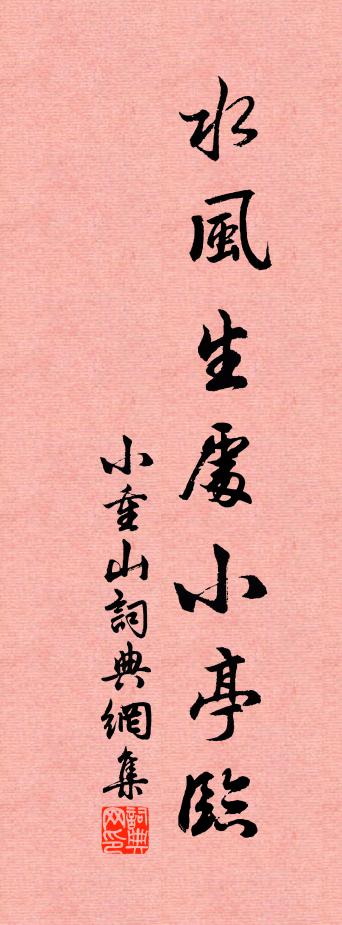 水風生處小亭臨
小重山詞典網集
詞典網印